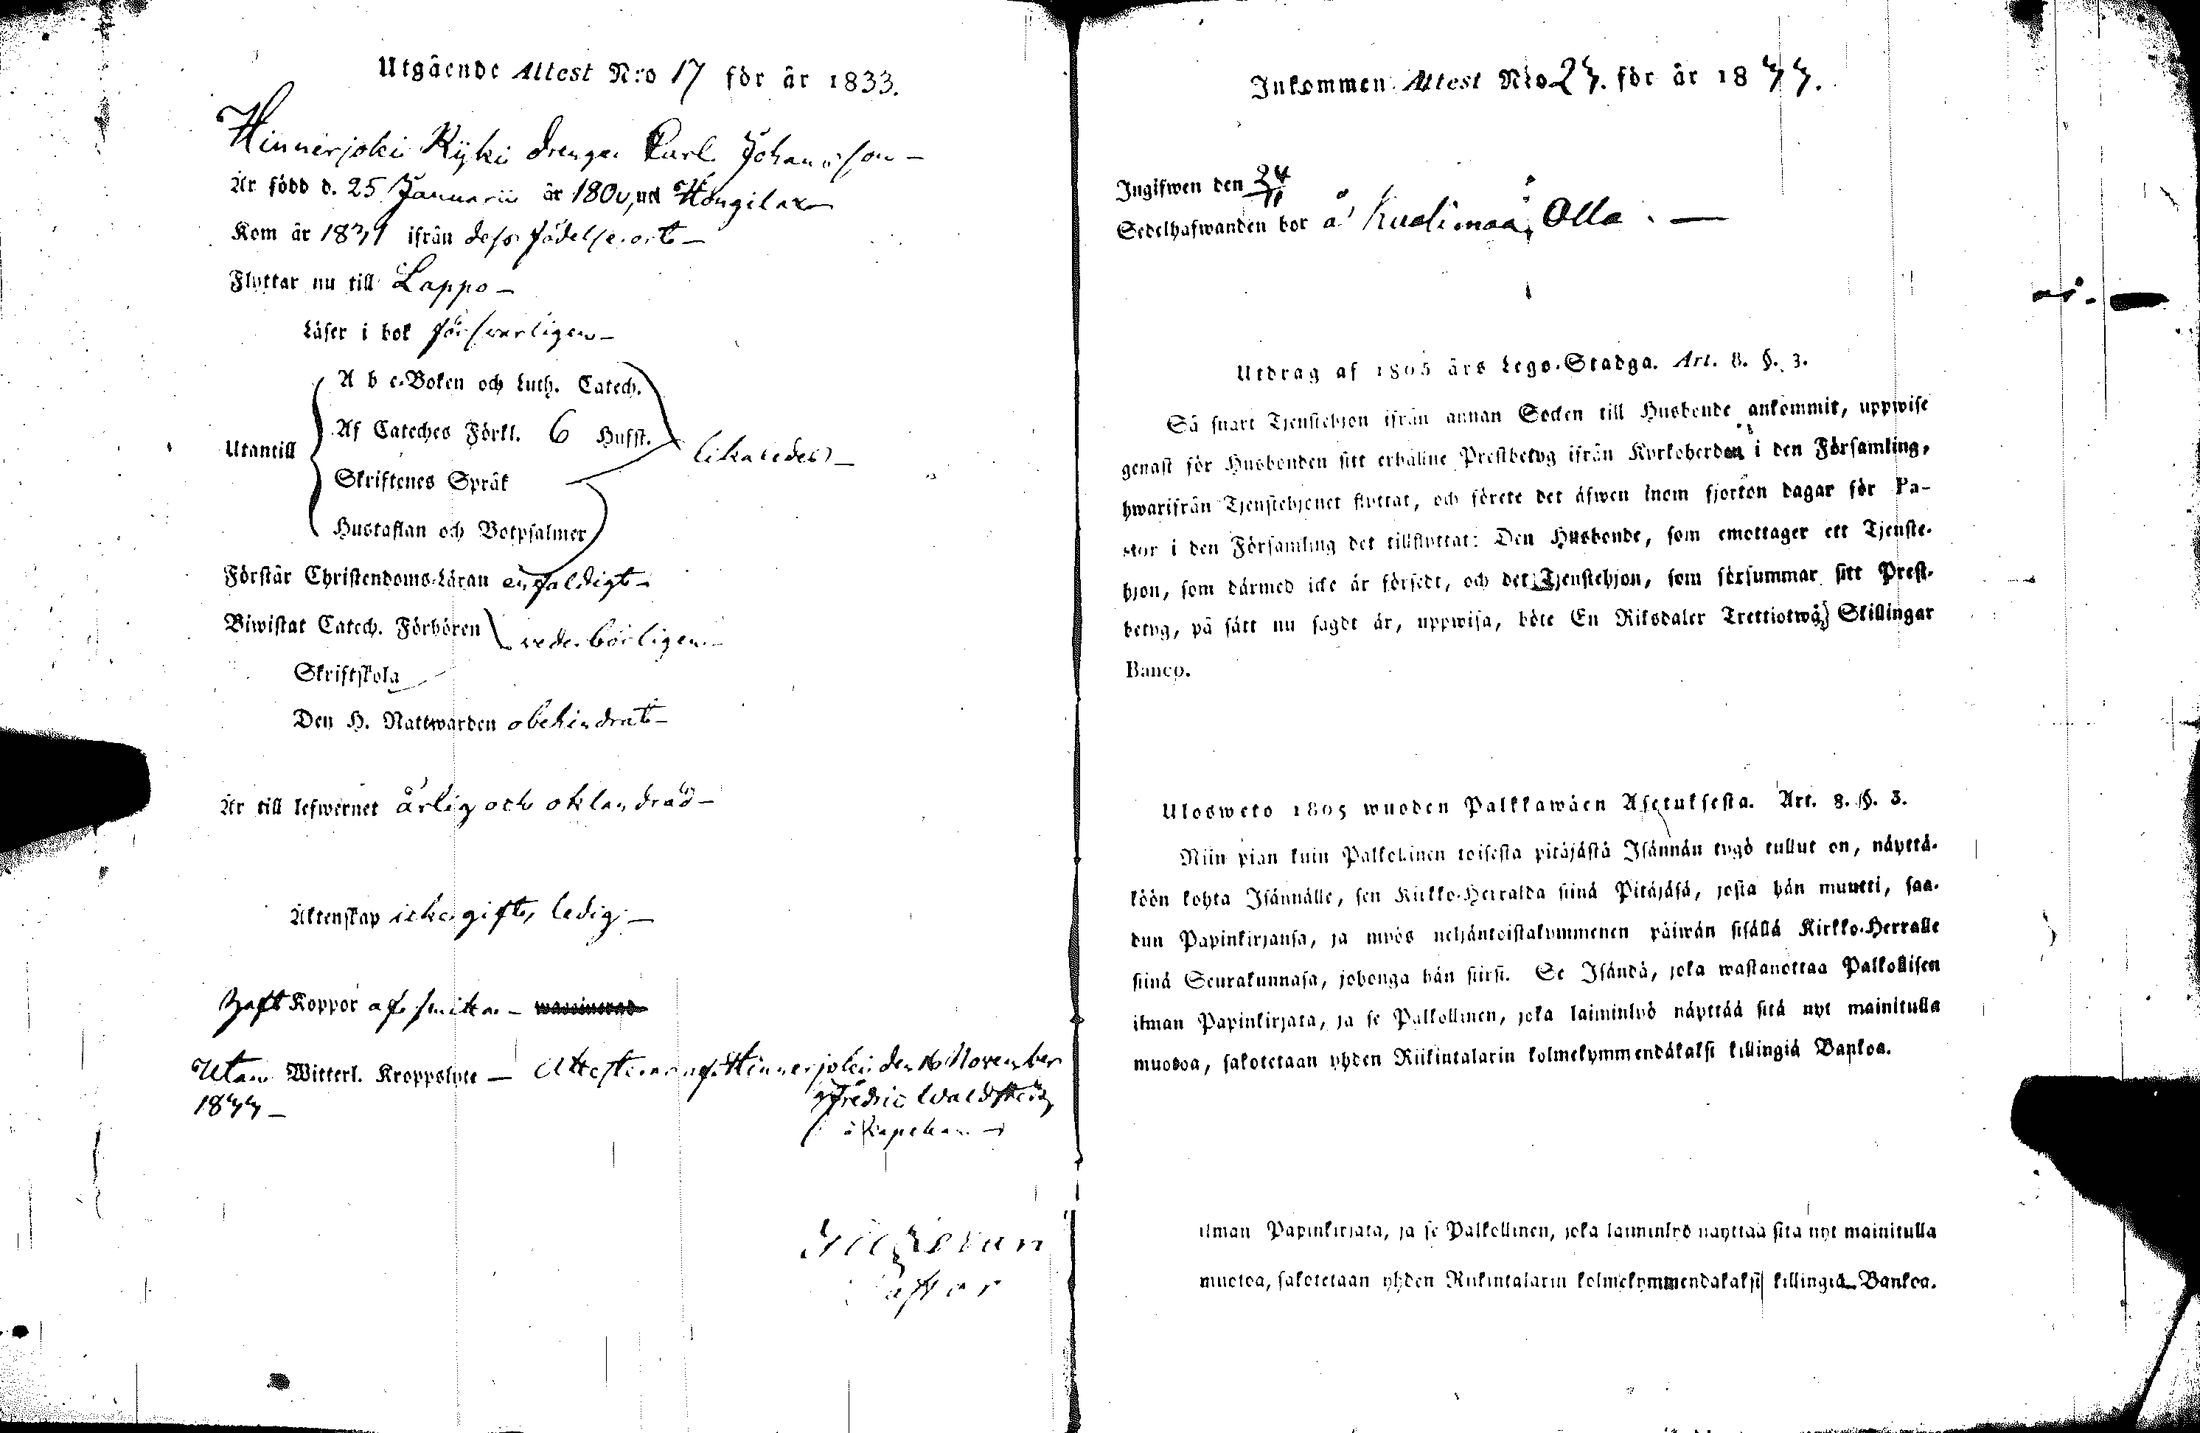 Utgående Attest N:o 17 för år 1833.
Hinnerjoki Kyki drengen Carl Johansson –
Är född d. 25 Januarii år 1800, uti Hongilax
Kom år 1831 ifrån dess födelseort –
Flyttar nu till Lappo –
Läser i bok försvarligen –
A b c-Boken och Luth. Catech.
Af Cateches Förkl. 6 Hufst.
Utantill likaledes –
Skriftenes Språk
Hustaflan och Botpsalmer
Förstår Christendoms-Läran enfaldigt –
Biwistat Catech. Förhören vederbörligen –
Skriftskola
Den H. Nattwarden obehindrat –
Är till lefwernet ärlig och oklandrad –
Äktenskap icke gift, ledig –
Haft Koppor af smitta –
Utan Witterl. Kroppslyte – Attesterar af Hinnerjoki den 16 November
1833 –
Fredric
Pastor
Inkommen Attest N:o 23. för år 1833.
Ingifwen den 24/11
Sedelhafwanden bor å Kuolimaa, Olla. –
Utdrag af 1805 års Lego-Stadga. Art. 8. §. 3.
Så snart Tjenstehjon ifrån annan Socken till Husbonde ankommit, uppwise
genast för Husbonden sitt erhållne Prestbetyg ifrån Kyrkoherden i den Församling,
hwarifrån Tjenstehjonet flyttat, och förete det äfwen inom fjorton dagar för Pa-
stor i den Församling det tillflyttat: Den Husbonde, som emottager ett Tjenste-
hjon, som därmed icke är försedt, och det Tjenstehjon, som försummar sitt Prest-
betyg, på sätt nu sagdt är, uppwisa, böte En Riksdaler Trettiotwå Skillingar
Banco.
Ulosweto 1805 wuoden Palkkawäen Asetuksesta. Art. 8. §. 3.
Niin pian kuin Palkollinen toisesta pitäjästä Isännän tygö tullut on, näyttä-
köön kohta Isännälle, sen Kirkko-Herralda siinä Pitäjäsä, josta hän muutti, saa-
dun Papinkirjansa, ja myös neljäntoistakymmenen päiwän sisällä Kirkko-Herralle
siinä Seurakunnasa, johonga hän siirsi. Se Isändä, joka wastanottaa Palkollisen
ilman Papinkirjata, ja se Palkollinen, joka laiminlyö näyttää sitä nyt mainitulla
muotoa, sakotetaan yhden Riikintalarin kolmekymmendäkaksi killingiä Bankoa.
ilman Papinkirjata, ja se Palkollinen, joka laiminlyö näyttää sitä nyt mainitulla
muotoa, sakotetaan yhden Riikintalarin kolmekymmendäkaksi killingiä Bankoa.